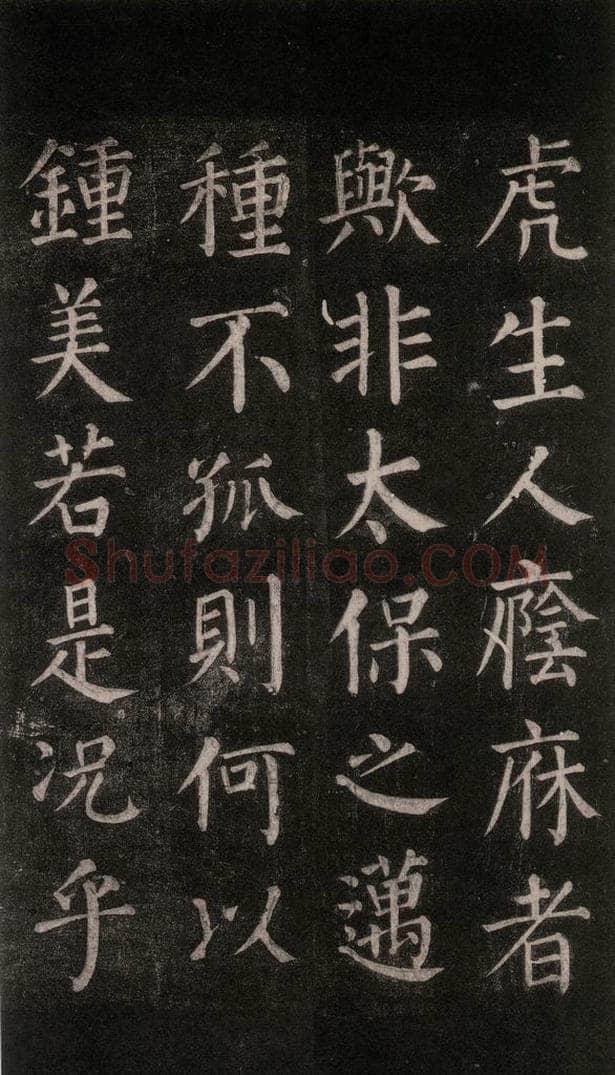 虎生人廕庥者
歟非太保之邁
種不孤則何以
鍾美若是况乎
Shufaziliao.COM